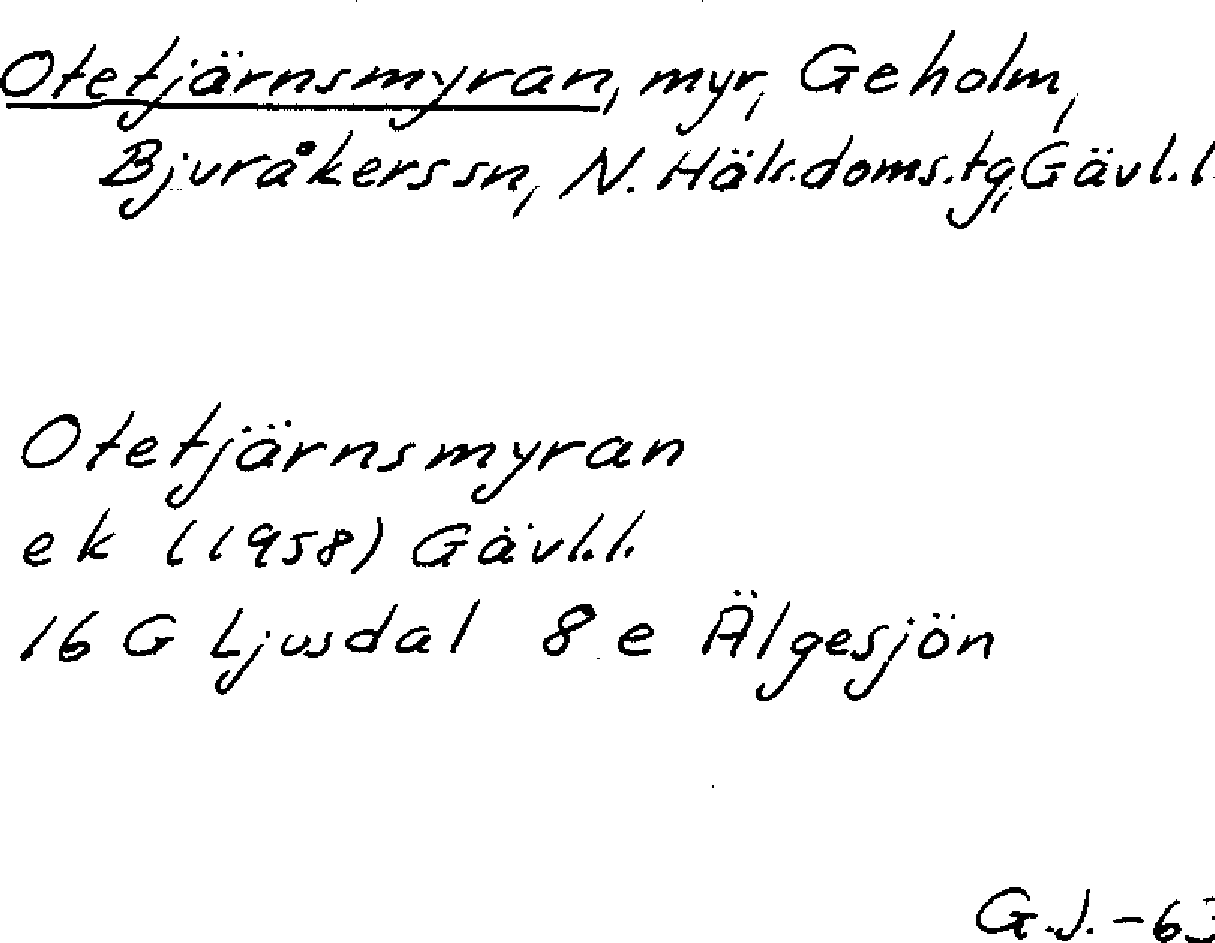 Otetjärnsmyran, myr, Geholm,
Bjuråkers sn, N. Häls. doms. tg, Gävl. l.
Otetjärnsmyran
ek (1958) Gävl. l.
16 G Ljusdal 8 e Älgesjön
G.J. -63